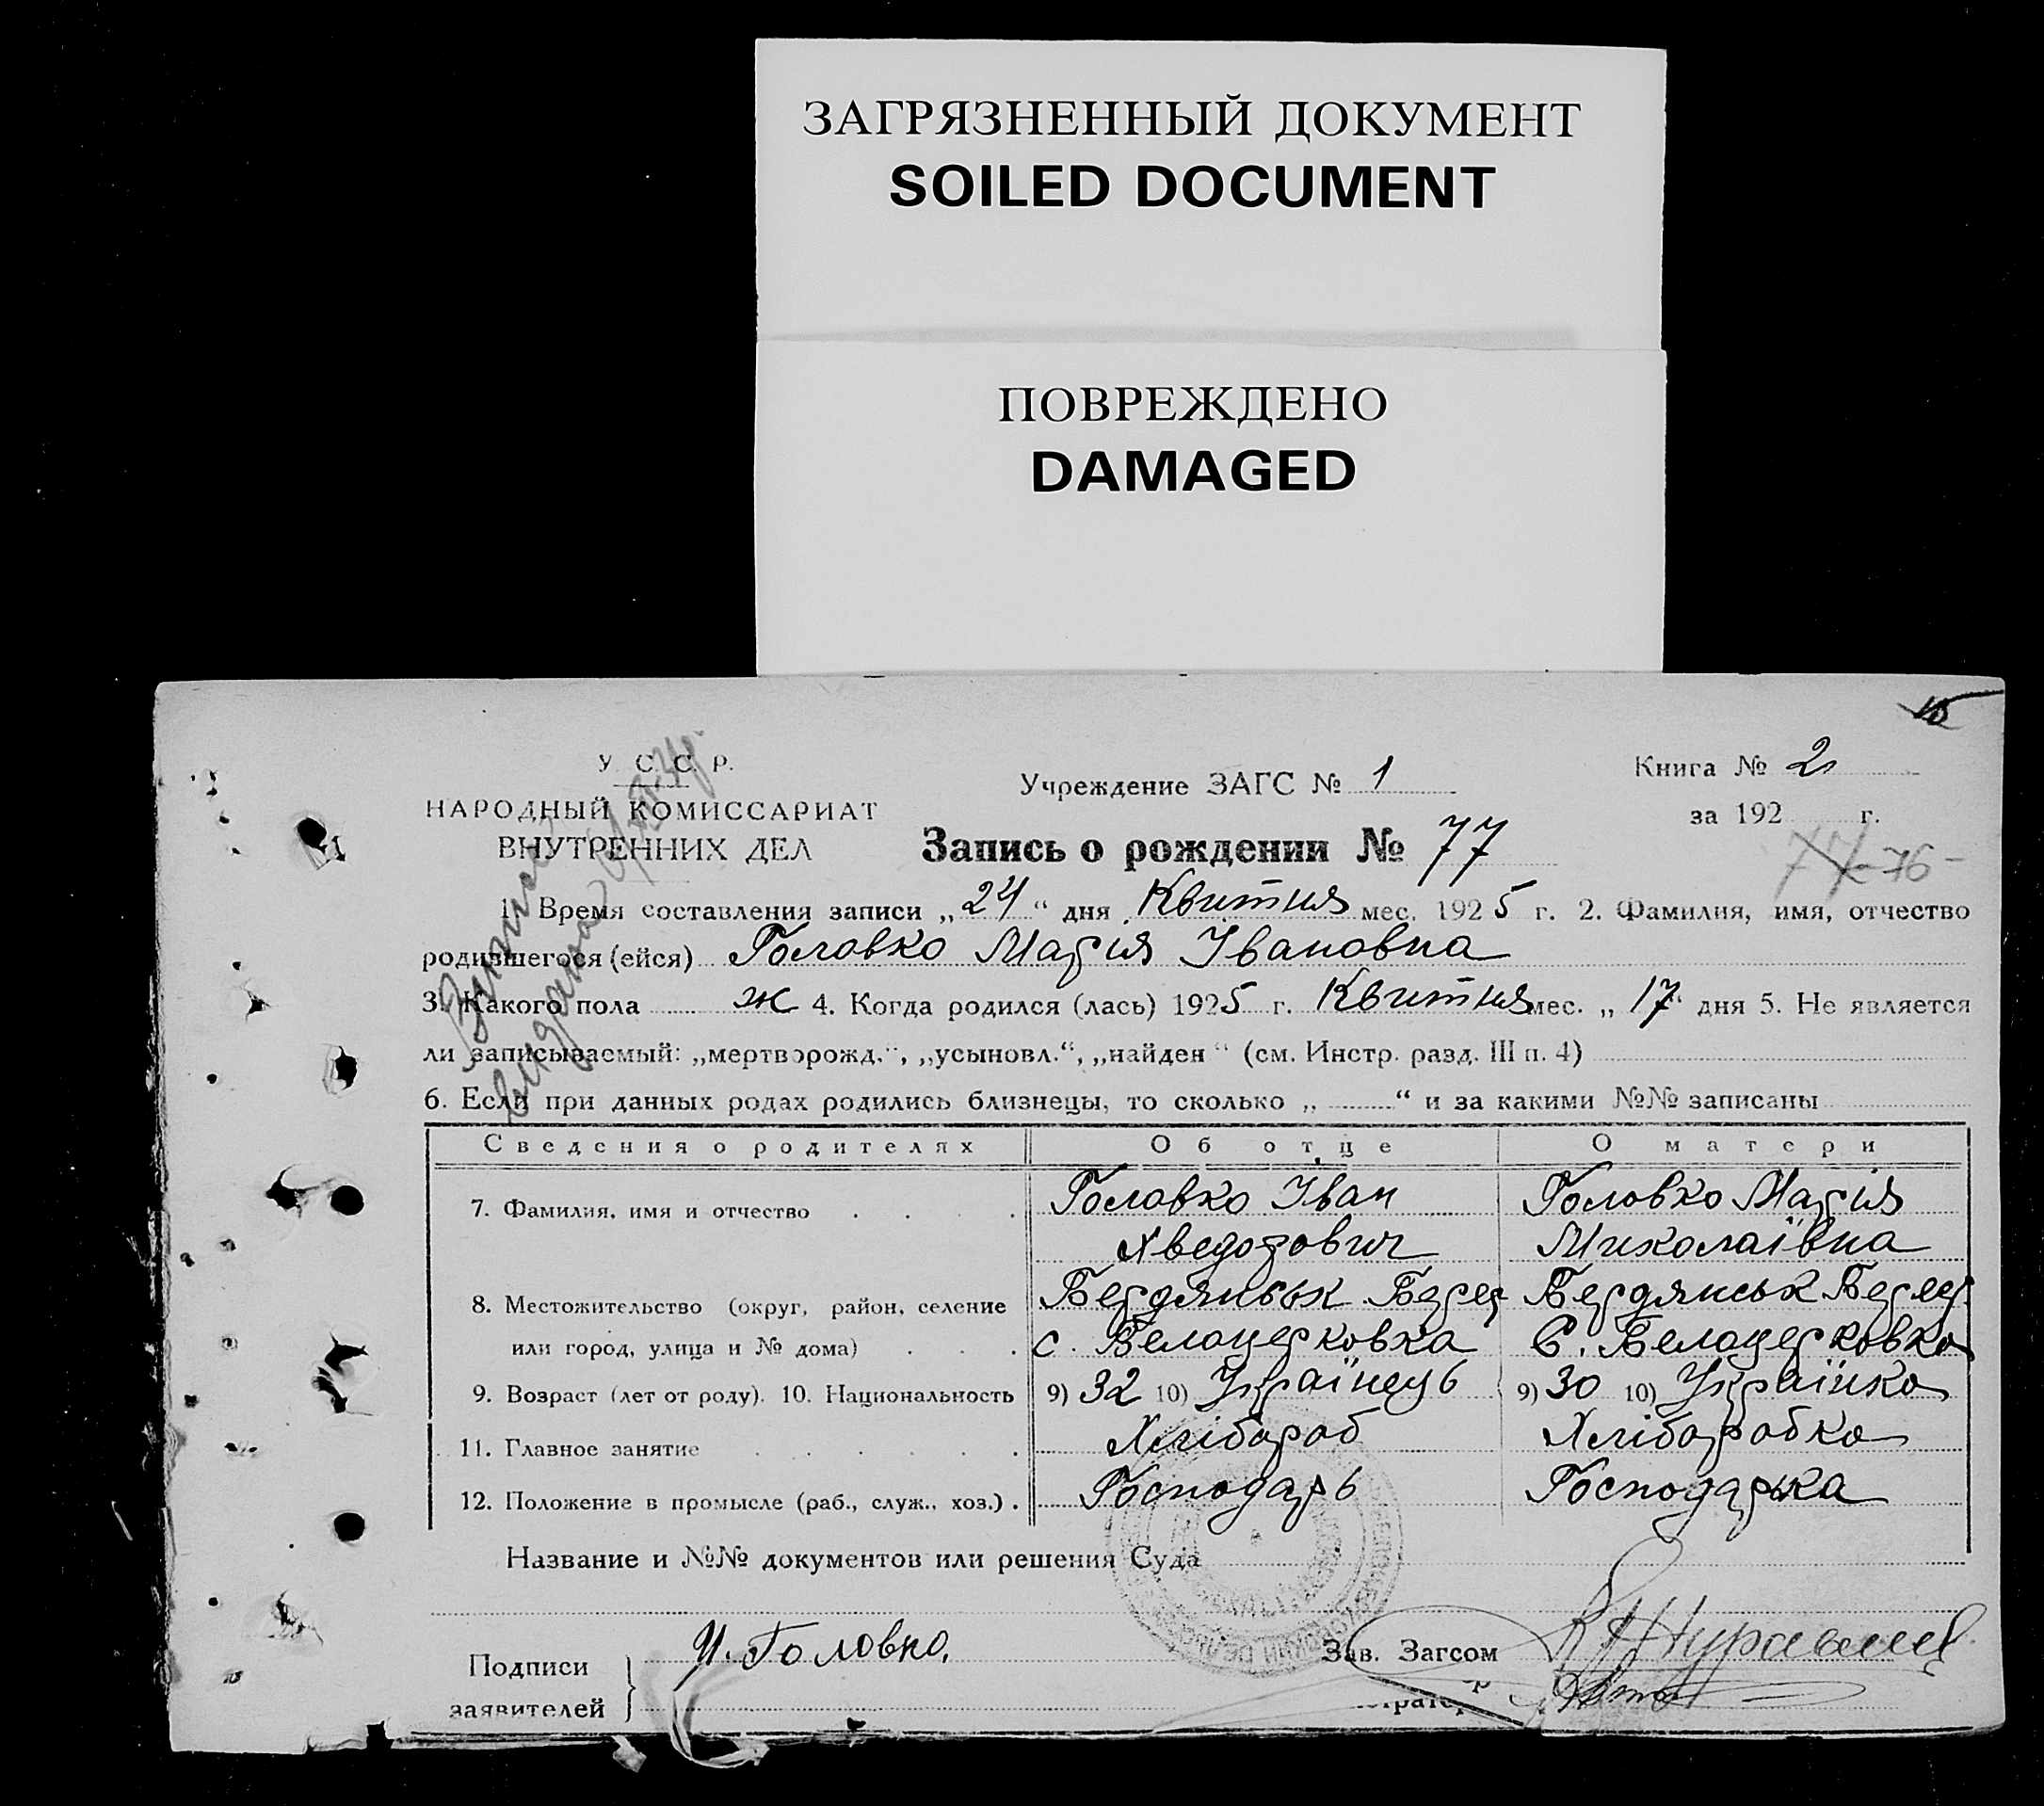 ЗАГРЯЗНЕННЫЙ ДОКУМЕНТ
SOILED DOCUMENT
ПОВРЕЖДЕНО
DAMAGED
У. С. С. Р.
НАРОДНЫЙ КОМИССАРИАТ
ВНУТРЕННИХ ДЕЛ
Учреждение ЗАГС № 1
Книга № 2
за 192 г.
Запись о рождении № 77
77-76-
1. Время составления записи „24“ дня Квитня мес. 1925 г. 2. Фамилия, имя, отчество
родившегося (ейся) Головко Мария Івановна
3. Какого пола ж 4. Когда родился (лась) 1925 г. Квитня мес. „17“ дня 5. Не является
ли записываемый: „мертворожд.“, „усыновл.“, „найден“ (см. Инстр. разд. III п. 4)
6. Если при данных родах родились близнецы, то сколько „ “ и за какими №№ записаны
Сведения о родителях Об отце О матери
7. Фамилия, имя и отчество Головко Іван Головко Марія
Хведорович Миколаївна
8. Местожительство (округ, район, селение Бердянськ Бердянськ
или город, улица и № дома) с. Белоцерковка с. Белоцерковка
9. Возраст (лет от роду). 10. Национальность 9) 32 10) Українець 9) 30 10) Українка
11. Главное занятие Хлібороб Хлібаробка
12. Положение в промысле (раб., служ., хоз.) Господарь Господарька
Название и №№ документов или решения Суда
Подписи
заявителей
И. Головко.
Зав. Загсом